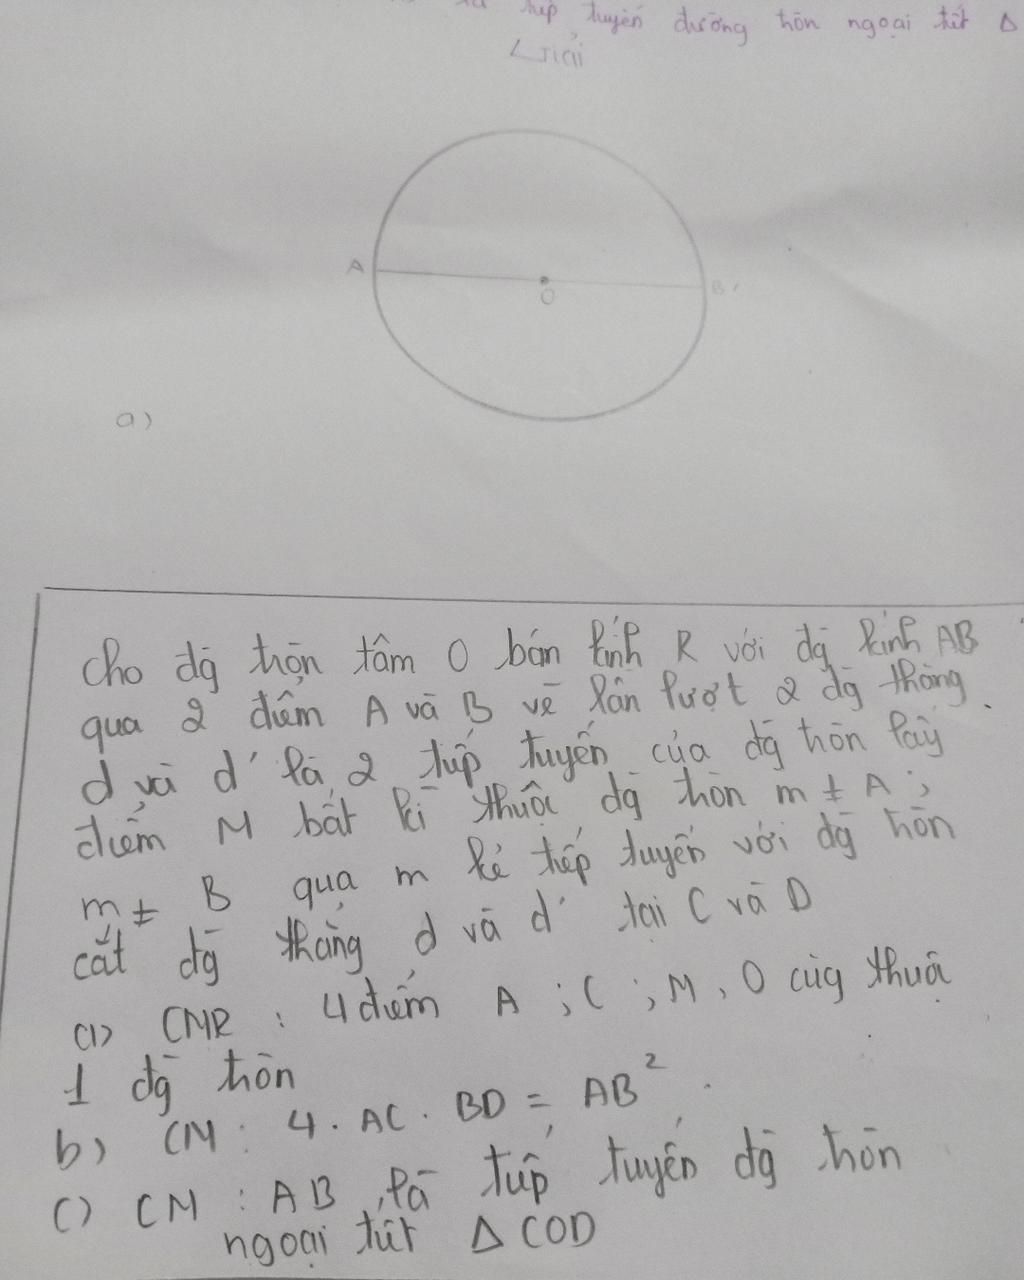 tiếp tuyến đường tròn ngoại tiết Δ
Giải
A
O
B
a)
Cho đg tròn tâm O bán kính R với đg kính AB
qua 2 điểm A và B vẽ lần lượt 2 đg thẳng
d và d' là 2 tiếp tuyến của đg tròn lấy
điểm M bất kì thuộc đg tròn m ≠ A ;
m ≠ B qua m kẻ tiếp tuyến với đg tròn
cắt đg thẳng d và d' tại C và D
a) CMR : 4 điểm A ; C ; M , O cùg thuộc
1 đg tròn
b) CM : 4 . AC . BD = AB²
c) CM : AB là tiếp tuyến đg tròn
ngoại tiết Δ COD